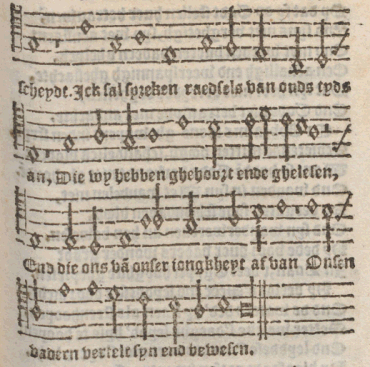 scheydt. Ick sal spreken raedsels van ouds tyds
an, Die wy hebben ghehoort ende ghelesen,
End die ons vā onser iongkheyt af van Onsen
vadern vertelt syn end bewesen.